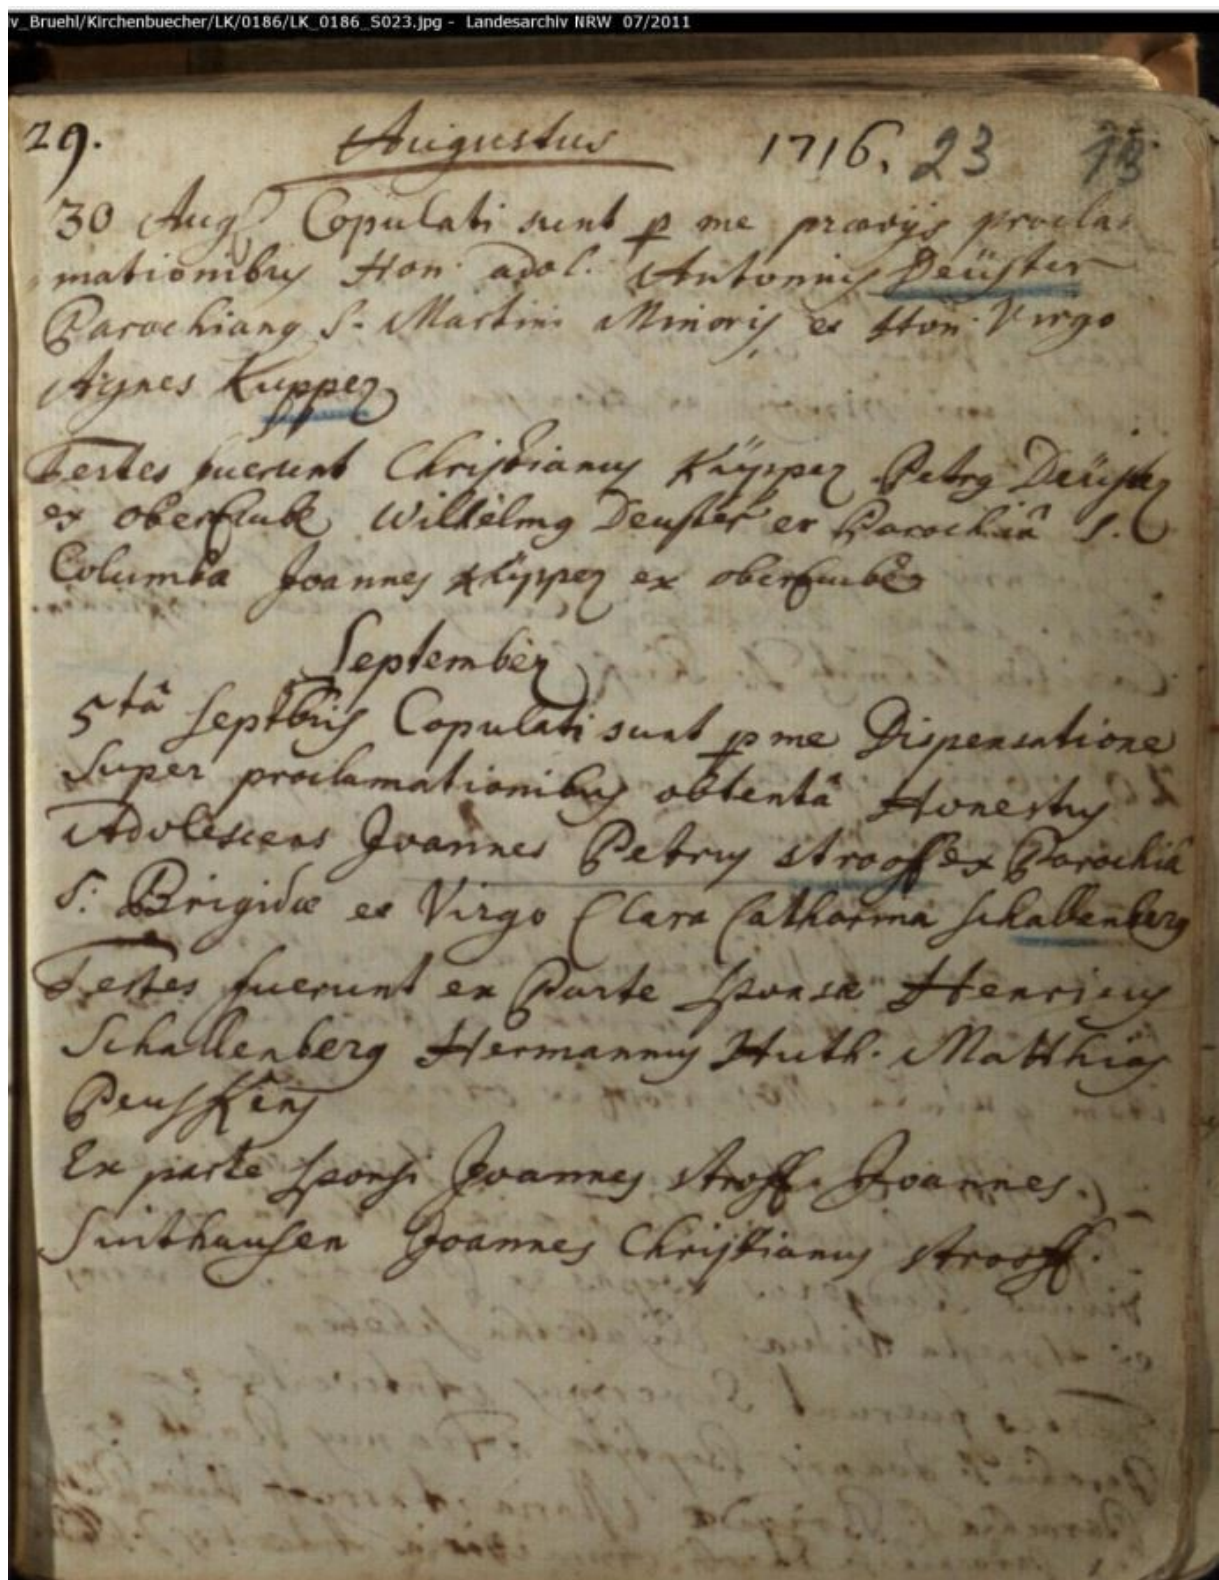 v_Bruehl/Kirchenbuecher/LK/0186/LK_0186_S023.jpg - Landesarchiv NRW 07/2011
29. Augustus 1716. 23
30 Aug Copulati sunt p me prævijs procla-
mationibus Hon. adol. Antonius Deüster
Parochianus S. Martini Minoris et Hon. Virgo
Agnes Kupper
Testes fuerunt Christianus Küpper Petrus Deüster
ex Wilhelmus Deuster ex Parochiâ S.
Columba Joannes Küpper ex
September
5tâ Septbris Copulati sunt p me Dispensatione
Super proclamationibus obtentâ Honestus
Adolescens Joannes Petrus strooff ex Parochiâ
S: Brigidæ et Virgo Clara Catharina Schallenberg
Testes fuerunt ex Parte Sponsæ Henricus
Schallenberg Hermannus Huth. Matthias
Peuskens
Ex parte Sponsi Joannes stroff. Joannes
Sinthausen Joannes Christianus strooff.